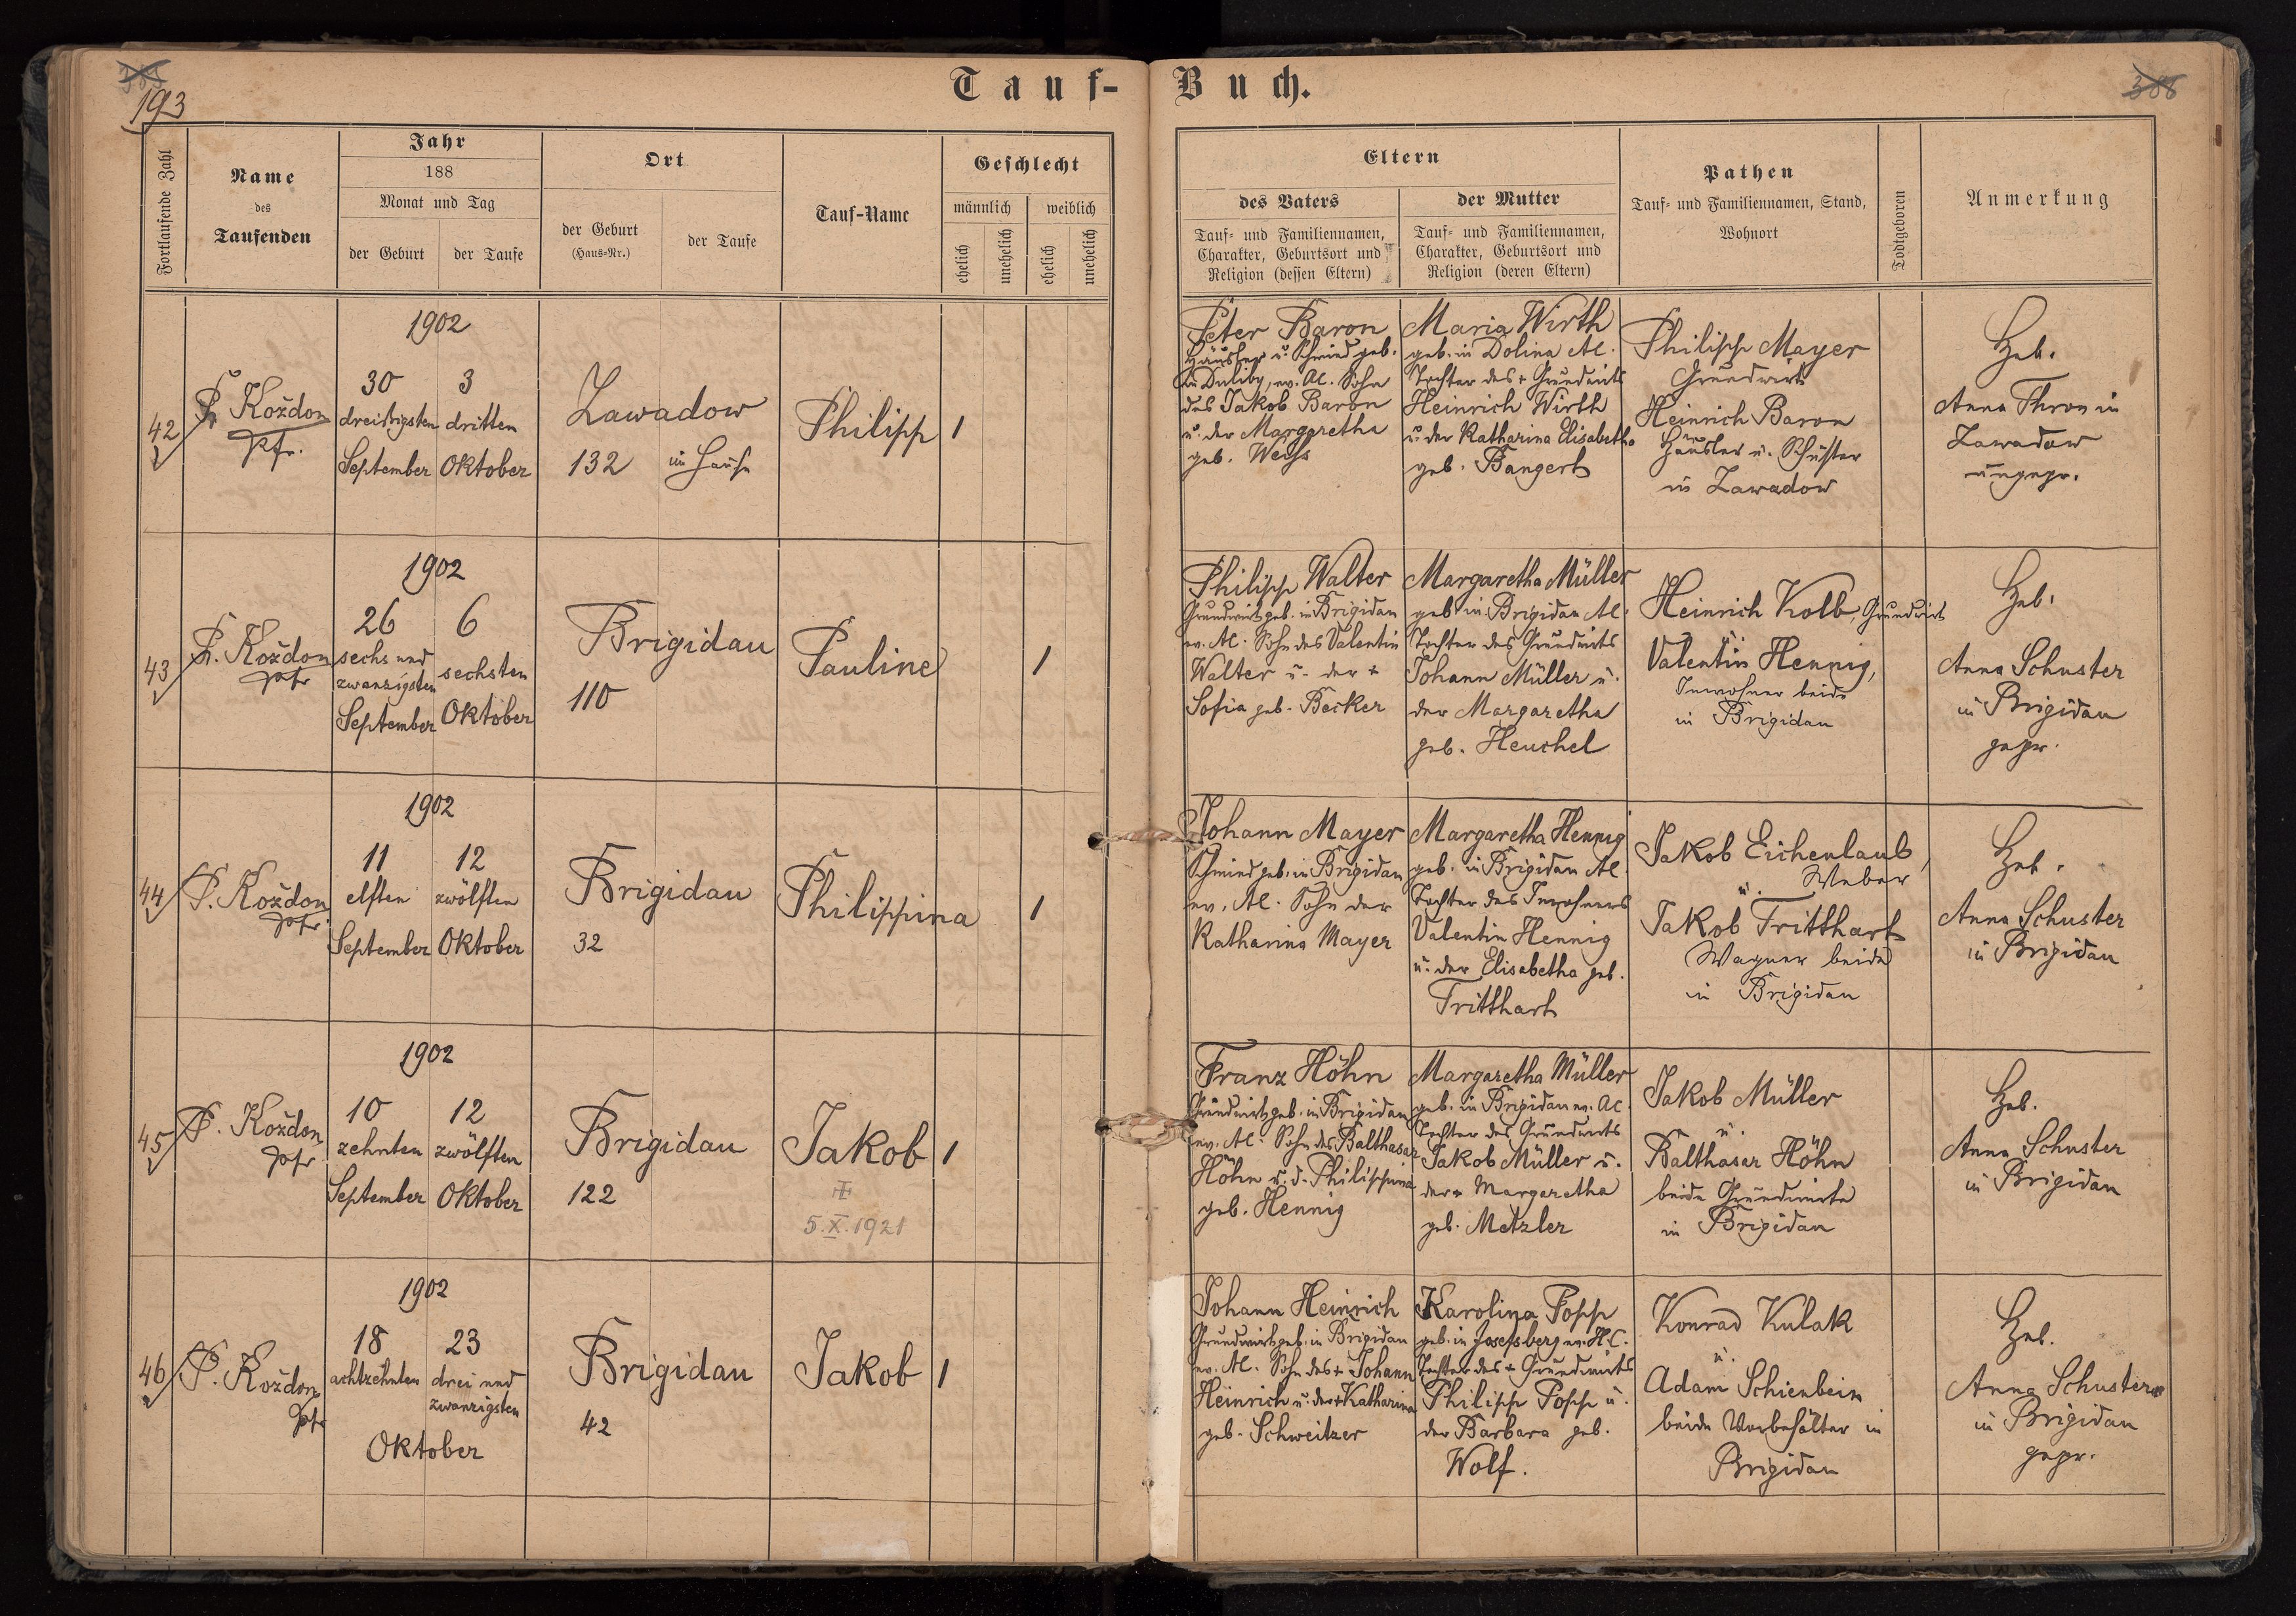 193
Tauf-Buch.
Fortlaufende Zahl
Name
des
Taufenden
Jahr
188
Monat und Tag
der Geburt
der Taufe
Ort
der Geburt
(Haus-Nr.)
der Taufe
Tauf-Name
Geschlecht
männlich
weiblich
ehelich
unehelich
ehelich
unehelich
Eltern
des Vaters
Tauf- und Familiennamen,
Charakter, Geburtsort und
Religion (dessen Eltern)
der Mutter
Tauf- und Familiennamen,
Charakter, Geburtsort und
Religion (deren Eltern)
Pathen
Tauf- und Familiennamen, Stand,
Wohnort
Todtgeboren
Anmerkung
42
Koždon
Pfr.
1902
30
dreißigsten
September
3
dritten
Oktober
Zawadow
132
im Hause
Philipp
1
Peter Baron
Häusler u. Schmied geb.
in Duliby, ev. AC. Sohn
des Jakob Baron
u. der Margaretha
geb. Weiß
Maria Wirth
geb. in Dolina AC.
Tochter des + Grundwirts
Heinrich Wirth
u. der Katharina Elisabetha
geb. Bangert
Philipp Mayer
Grundwirt
Heinrich Baron
Häusler u. Schuster
in Zawadow
Heb.
Anna Thron in
Zawadow
ungepr.
43
Koždon
Pfr
1902
26
sechs und
zwanzigsten
September
6
sechsten
Oktober
Brigidau
110
Pauline
1
Philipp Walter
Grundwirt geb. in Brigidau
ev. AC. Sohn des Valentin
Walter u. der +
Sofia geb. Becker
Margaretha Müller
geb. in Brigidau AC.
Tochter des Grundwirts
Johann Müller u.
der Margaretha
geb. Heuchel
Heinrich Kolb, Grundwirt
u.
Valentin Hennig,
Inwohner beide
in Brigidau
Heb.
Anna Schuster
in Brigidau
gepr.
44
P. Koždon
Pfr.
1902
11
elften
September
12
zwölften
Oktober
Brigidau
32
Philippina
1
Johann Mayer
Schmied geb. in Brigidau
ev. AC. Sohn der
Katharina Mayer
Margaretha Hennig
geb. in Brigidau AC.
Tochter des Inwohners
Valentin Hennig
u. der Elisabetha geb.
Tritthart
Jakob Eichenlaub,
Weber
u.
Jakob Tritthart
Wagner beide
in Brigidau
Heb.
Anna Schuster
in Brigidau
45
P. Koždon
Pfr
1902
10
zehnten
September
12
zwölften
Oktober
Brigidau
122
Jakob
5.X.1921
1
Franz Höhn
Grundwirt geb. in Brigidau
ev. AC. Sohn des Balthasar
Höhn u. d. Philippina
geb. Hennig
Margaretha Müller
geb. in Brigidau ev. AC.
Tochter des Grundwirts
Jakob Müller u.
der + Margaretha
geb. Metzler
Jakob Müller
u.
Balthasar Höhn
beide Grundwirte
in Brigidau
Heb.
Anna Schuster
in Brigidau
46
P. Koždon
Pfr
1902
18
achtzehnten
23
drei und
zwanzigsten
Oktober
Brigidau
42
Jakob
1
Johann Heinrich
Grundwirt geb. in Brigidau
ev. AC. Sohn des + Johann
Heinrich u. der + Katharina
geb. Schweitzer
Karolina Popp
geb. in Josefsberg ev. H.C.
Tochter des + Grundwirts
Philipp Popp u.
der Barbara geb.
Wolf.
Konrad Kulak
u.
Adam Schienbein
beide Vorbehälter in
Brigidau
Heb.
Anna Schuster
in Brigidau
gepr.